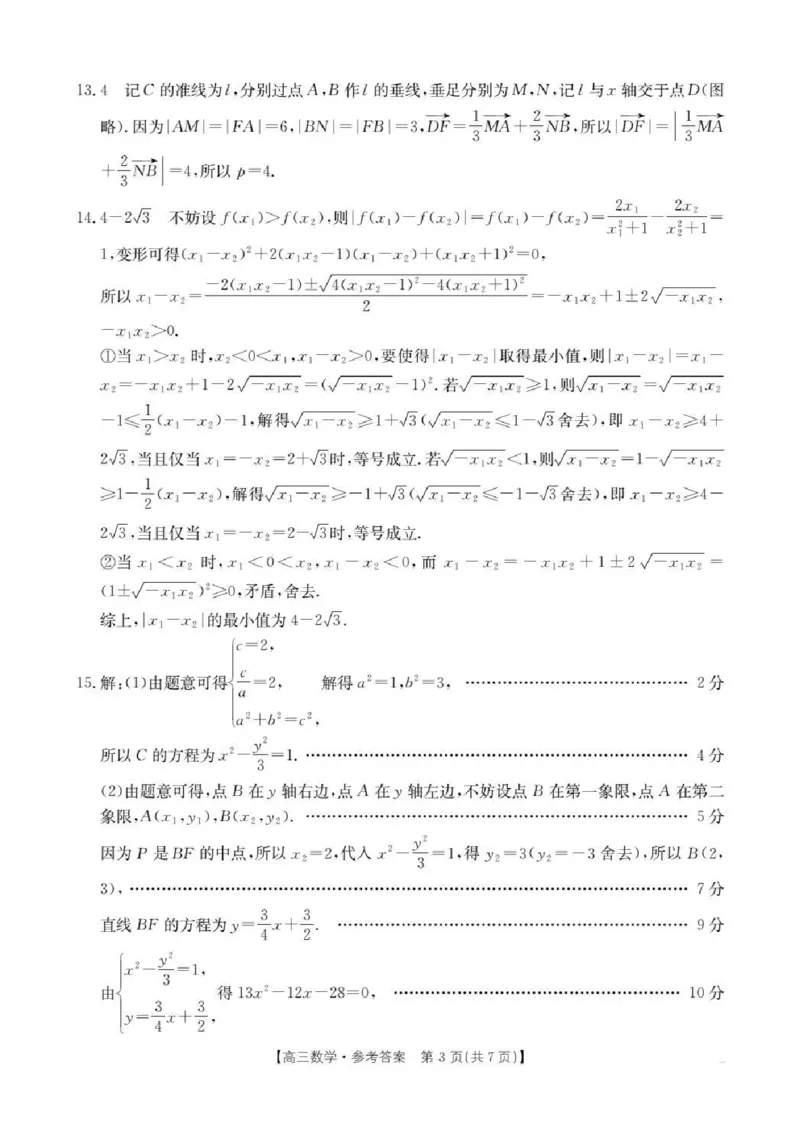 13. 4 记C的准线为l,分别过点A,B作l的垂线,垂足分别为M,N,记l与x轴交于点D(图
略).因为|AM|=|FA|=6,|BN|=|FB|=3,$\overrightarrow{DF}=\frac{1}{3}\overrightarrow{MA}+\frac{2}{3}\overrightarrow{NB}$,所以$|\overrightarrow{DF}|=\left|\frac{1}{3}\overrightarrow{MA}\right.$
$\left.+\frac{2}{3}\overrightarrow{NB}\right|=4$,所以p=4.
14. $4-2\sqrt{3}$ 不妨设$f(x_1)>f(x_2)$,则$|f(x_1)-f(x_2)|=f(x_1)-f(x_2)=\frac{2x_1}{x_1^2+1}-\frac{2x_2}{x_2^2+1}=$
1,变形可得$(x_1-x_2)^2+2(x_1x_2-1)(x_1-x_2)+(x_1x_2+1)^2=0$,
所以$x_1-x_2=\frac{-2(x_1x_2-1)\pm\sqrt{4(x_1x_2-1)^2-4(x_1x_2+1)^2}}{2}=-x_1x_2+1\pm2\sqrt{-x_1x_2}$,
$-x_1x_2>0$.
①当$x_1>x_2$时,$x_2<0<x_1$,$x_1-x_2>0$,要使得$|x_1-x_2|$取得最小值,则$|x_1-x_2|=x_1-$
$x_2=-x_1x_2+1-2\sqrt{-x_1x_2}=(\sqrt{-x_1x_2}-1)^2$.若$\sqrt{-x_1x_2}\geqslant1$,则$\sqrt{x_1-x_2}=\sqrt{-x_1x_2}$
$-1\leqslant\frac{1}{2}(x_1-x_2)-1$,解得$\sqrt{x_1-x_2}\geqslant1+\sqrt{3}$($\sqrt{x_1-x_2}\leqslant1-\sqrt{3}$舍去),即$x_1-x_2\geqslant4+$
$2\sqrt{3}$,当且仅当$x_1=-x_2=2+\sqrt{3}$时,等号成立.若$\sqrt{-x_1x_2}<1$,则$\sqrt{x_1-x_2}=1-\sqrt{-x_1x_2}$
$\geqslant1-\frac{1}{2}(x_1-x_2)$,解得$\sqrt{x_1-x_2}\geqslant-1+\sqrt{3}$($\sqrt{x_1-x_2}\leqslant-1-\sqrt{3}$舍去),即$x_1-x_2\geqslant4-$
$2\sqrt{3}$,当且仅当$x_1=-x_2=2-\sqrt{3}$时,等号成立.
②当$x_1<x_2$时,$x_1<0<x_2$,$x_1-x_2<0$,而$x_1-x_2=-x_1x_2+1\pm2\sqrt{-x_1x_2}=$
$(1\pm\sqrt{-x_1x_2})^2\geqslant0$,矛盾,舍去.
综上,$|x_1-x_2|$的最小值为$4-2\sqrt{3}$.
15. 解:(1)由题意可得$\begin{cases}c=2,\\\frac{c}{a}=2,\\a^2+b^2=c^2,\end{cases}$ 解得$a^2=1,b^2=3$, …… 2分
所以C的方程为$x^2-\frac{y^2}{3}=1$. …… 4分
(2)由题意可得,点B在y轴右边,点A在y轴左边,不妨设点B在第一象限,点A在第二
象限,$A(x_1,y_1),B(x_2,y_2)$. …… 5分
因为P是BF的中点,所以$x_2=2$,代入$x^2-\frac{y^2}{3}=1$,得$y_2=3$($y_2=-3$舍去),所以B(2,
3), …… 7分
直线BF的方程为$y=\frac{3}{4}x+\frac{3}{2}$. …… 9分
由$\begin{cases}x^2-\frac{y^2}{3}=1,\\y=\frac{3}{4}x+\frac{3}{2},\end{cases}$得$13x^2-12x-28=0$, …… 10分
【高三数学·参考答案 第3页(共7页)】